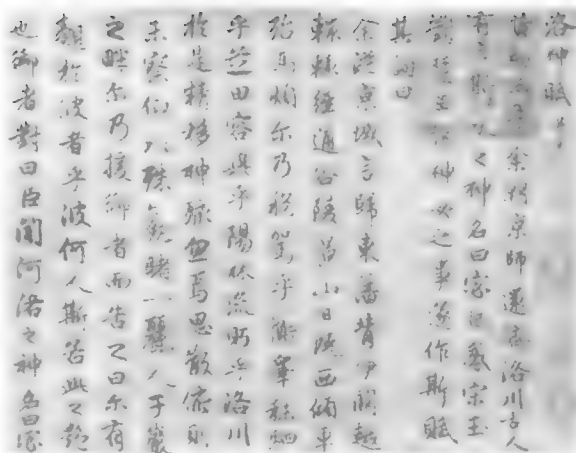 洛神賦
余朝京師還濟洛川古人
有言斯水之神名曰宓妃感宋玉
對楚王神女之事遂作斯賦
其詞曰
余從京城言歸東藩背伊闕越
轘轅經通谷陵景山日既西傾車
殆馬煩尔乃稅駕乎蘅皋秣駟
乎芝田容與乎陽林流眄乎洛川
於是精移神駭忽焉思散俯則
未察仰以殊觀睹一麗人于巖
之畔尔乃援御者而告之曰尔有
覿於彼者乎彼何人斯若此之艷
也御者對曰臣聞河洛之神名曰宓